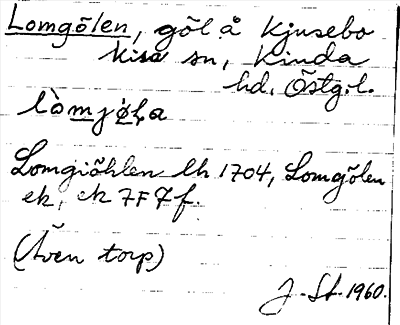 Lomgölen, göl å Kjusebo
Kisa sn, Kinda
hd, Östg.l.
lòmjø̀la
Lomgiöhlen lh 1704, Lomgölen
ek, ek 7F7f.
(Även torp)
J. St. 1960.